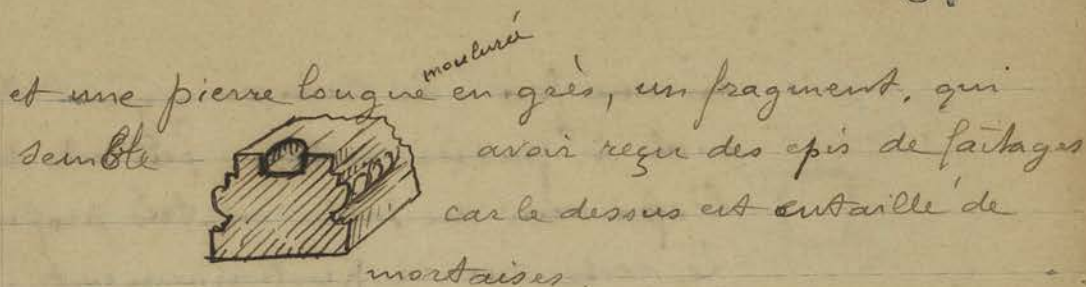 moulurée
et une pierre longue en grès, un fragment, qui
semble avoir reçu des epis de faîtages
car le dessus est entaillé de
mortaises.